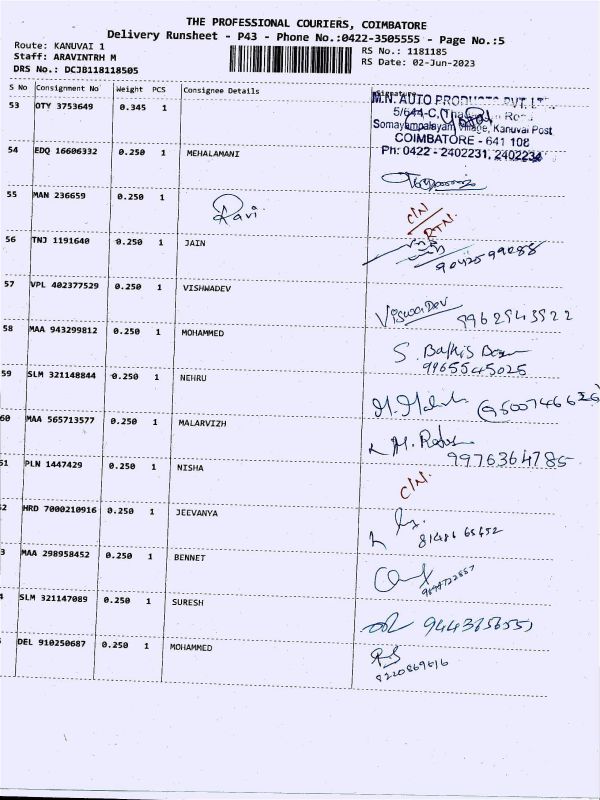 THE PROFESSIONAL COURIERS, COIMBATORE
Delivery Runsheet - P43 - Phone No.:0422-3505555 - Page No.:5
Route: KANUVAI 1
Staff: ARAVINTRH M
DRS No.: DCJB118118505
RS No.: 1181185
RS Date: 02-Jun-2023
S No Consignment No Weight PCS Consignee Details Signature
53 OTY 3753649 0.345 1
M.N. AUTO PRODUCTS PVT. LT
5/644-C, Road
Somayampalayam Village, Kanuvai Post
COIMBATORE - 641 108
Ph: 0422 - 2402231, 2402234
54 EDQ 16606332 0.250 1 MEHALAMANI
55 MAN 236659 0.250 1 Ravi C/N RTN.
56 TNJ 1191640 0.250 1 JAIN
9042599088
57 VPL 402377529 0.250 1 VISHWADEV
ViswaDev 9962543522
58 MAA 943299812 0.250 1 MOHAMMED
S.
9965545025
59 SLM 321148844 0.250 1 NEHRU
60 MAA 565713577 0.250 1 MALARVIZH
9976364785
51 PLN 1447429 0.250 1 NISHA C/N.
2 HRD 7000210916 0.250 1 JEEVANYA
3 MAA 298958452 0.250 1 BENNET
4 SLM 321147089 0.250 1 SURESH
DEL 910250687 0.250 1 MOHAMMED
8220869616